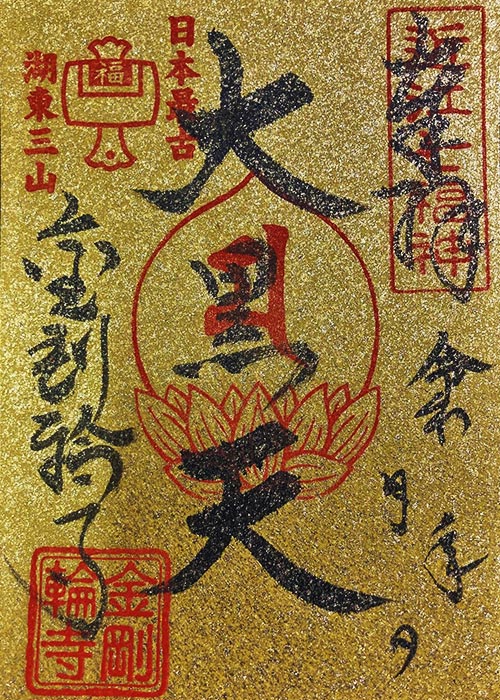 奉拝
近江七福神
令和 年 月 日
大黒天
日本最古
湖東三山
福
金剛輪寺
金剛輪寺